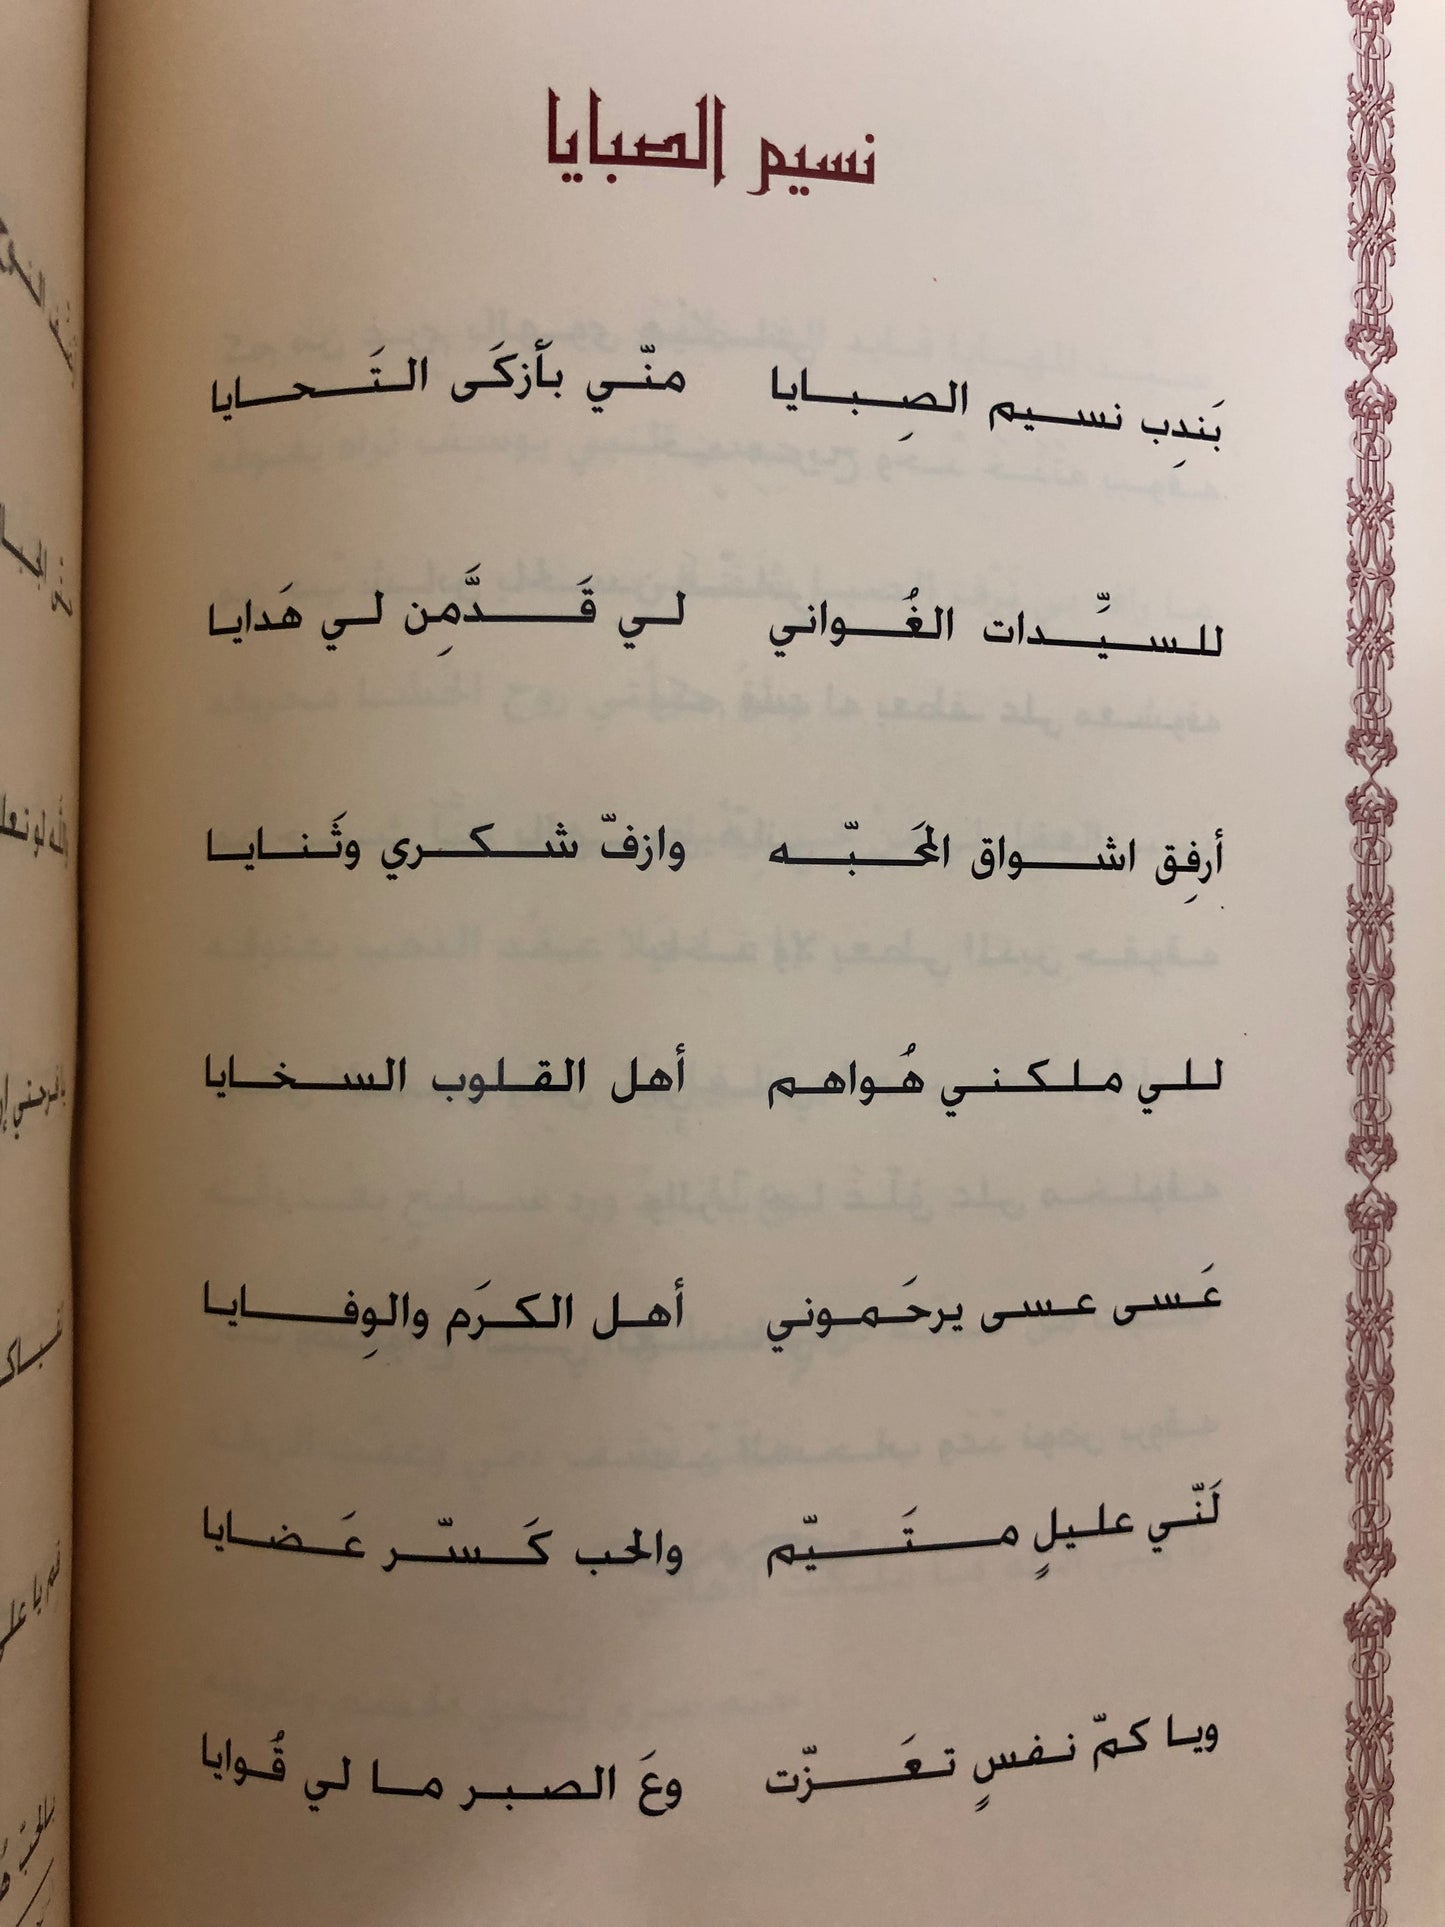 نسيم الصبايا
بَندِب نسيم الصِبايا منّي بأزكَى التَحايا
للسيِّدات الغُواني لي قَدَّمِن لي هَدايا
أرفِق اشواق المَحبّه وازفّ شكري وثَنايا
للي ملكني هُواهم أهل القلوب السخايا
عَسى عسى يرحَموني أهل الكرَم والوِفايا
لَنّي عليلٍ متَيّم والحب كَسّر عَضايا
ويا كمّ نفسٍ تعَزّت وعَ الصبر ما لي قُوايا